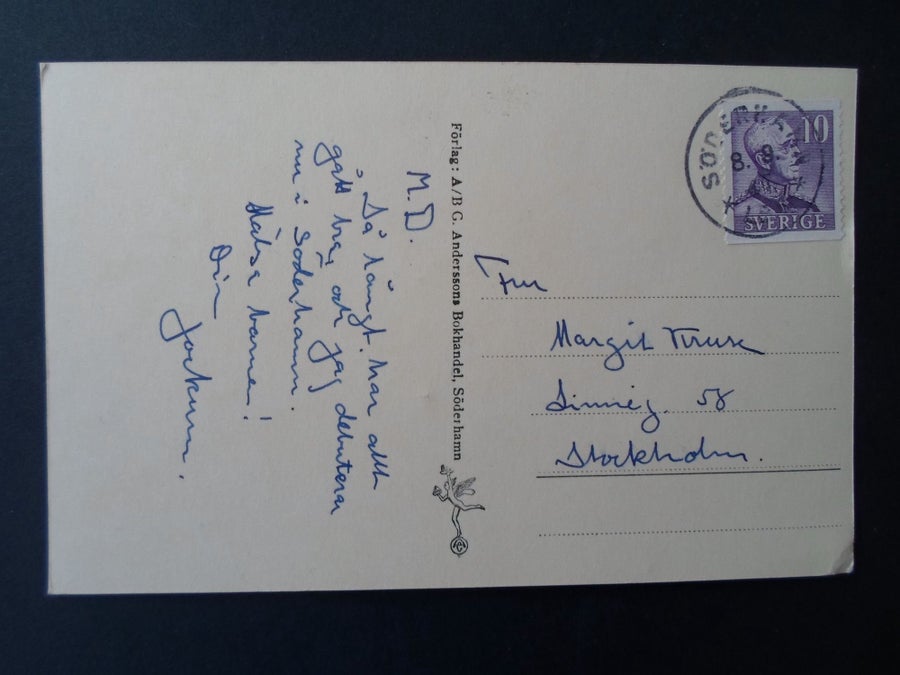 M.D.
Så långt har allt
gått bra, och jag debuterar
nu i Söderhamn.
Hälsa barnen!
Din
Jockum.
Förlag: A/B G. Anderssons Bokhandel, Söderhamn
SÖDERH
8. 9
10
SVERIGE
Fru
Margit
Linnég. 58
Stockholm.